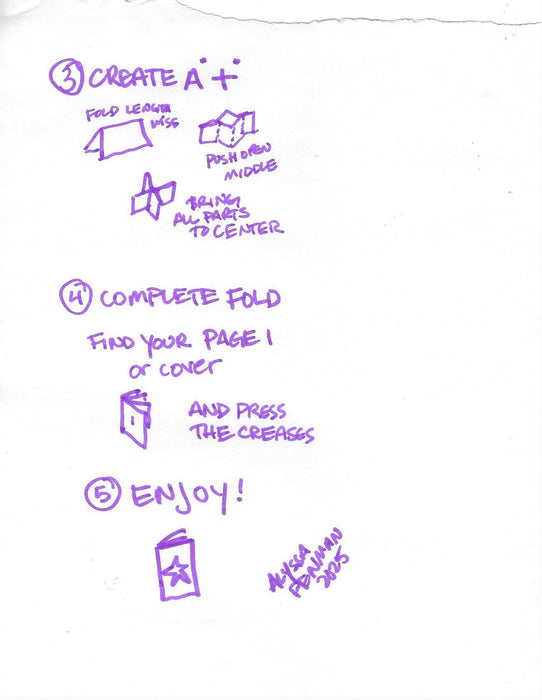 3 CREATE A "+"
FOLD LENGTH
WISE
PUSH OPEN
MIDDLE
BRING
ALL PARTS
TO CENTER
4 COMPLETE FOLD
FIND YOUR PAGE 1
or cover
1
AND PRESS
THE CREASES
5 ENJOY!
ALYSSA
PENMAN
2025